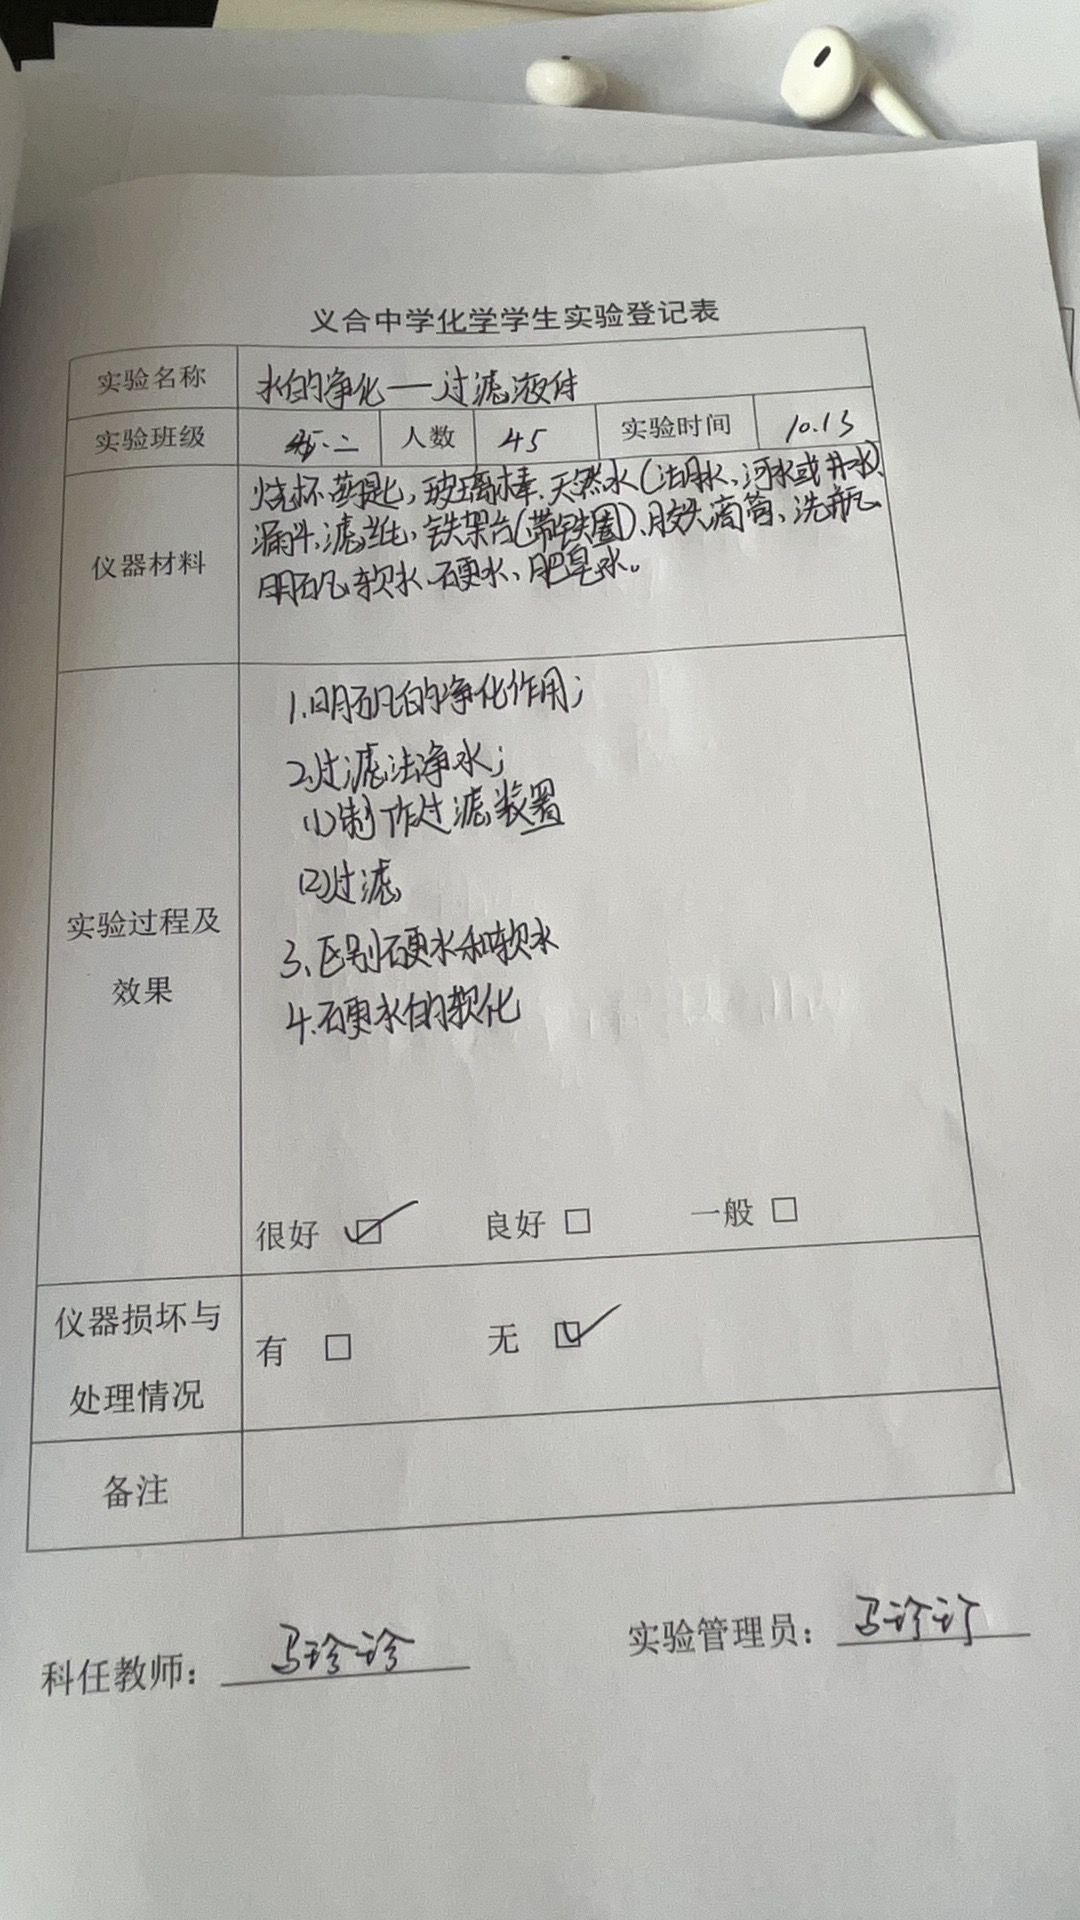 义合中学化学学生实验登记表
实验名称 水的净化——过滤液体
实验班级 人数 45 实验时间 10.13
仪器材料
烧杯、药匙，玻璃棒、天然水（湖水、河水或井水）、
漏斗、滤纸，铁架台（带铁圈）、胶头滴管、洗瓶、
明矾、软水、硬水、肥皂水。
实验过程及
效果
1.明矾的净化作用；
2.过滤法净水；
(1)制作过滤装置
(2)过滤
3、区别硬水和软水
4.硬水的软化
很好 ☑ 良好 □ 一般 □
仪器损坏与
处理情况
有 □ 无 ☑
备注
科任教师：马珍珍 实验管理员：马珍珍